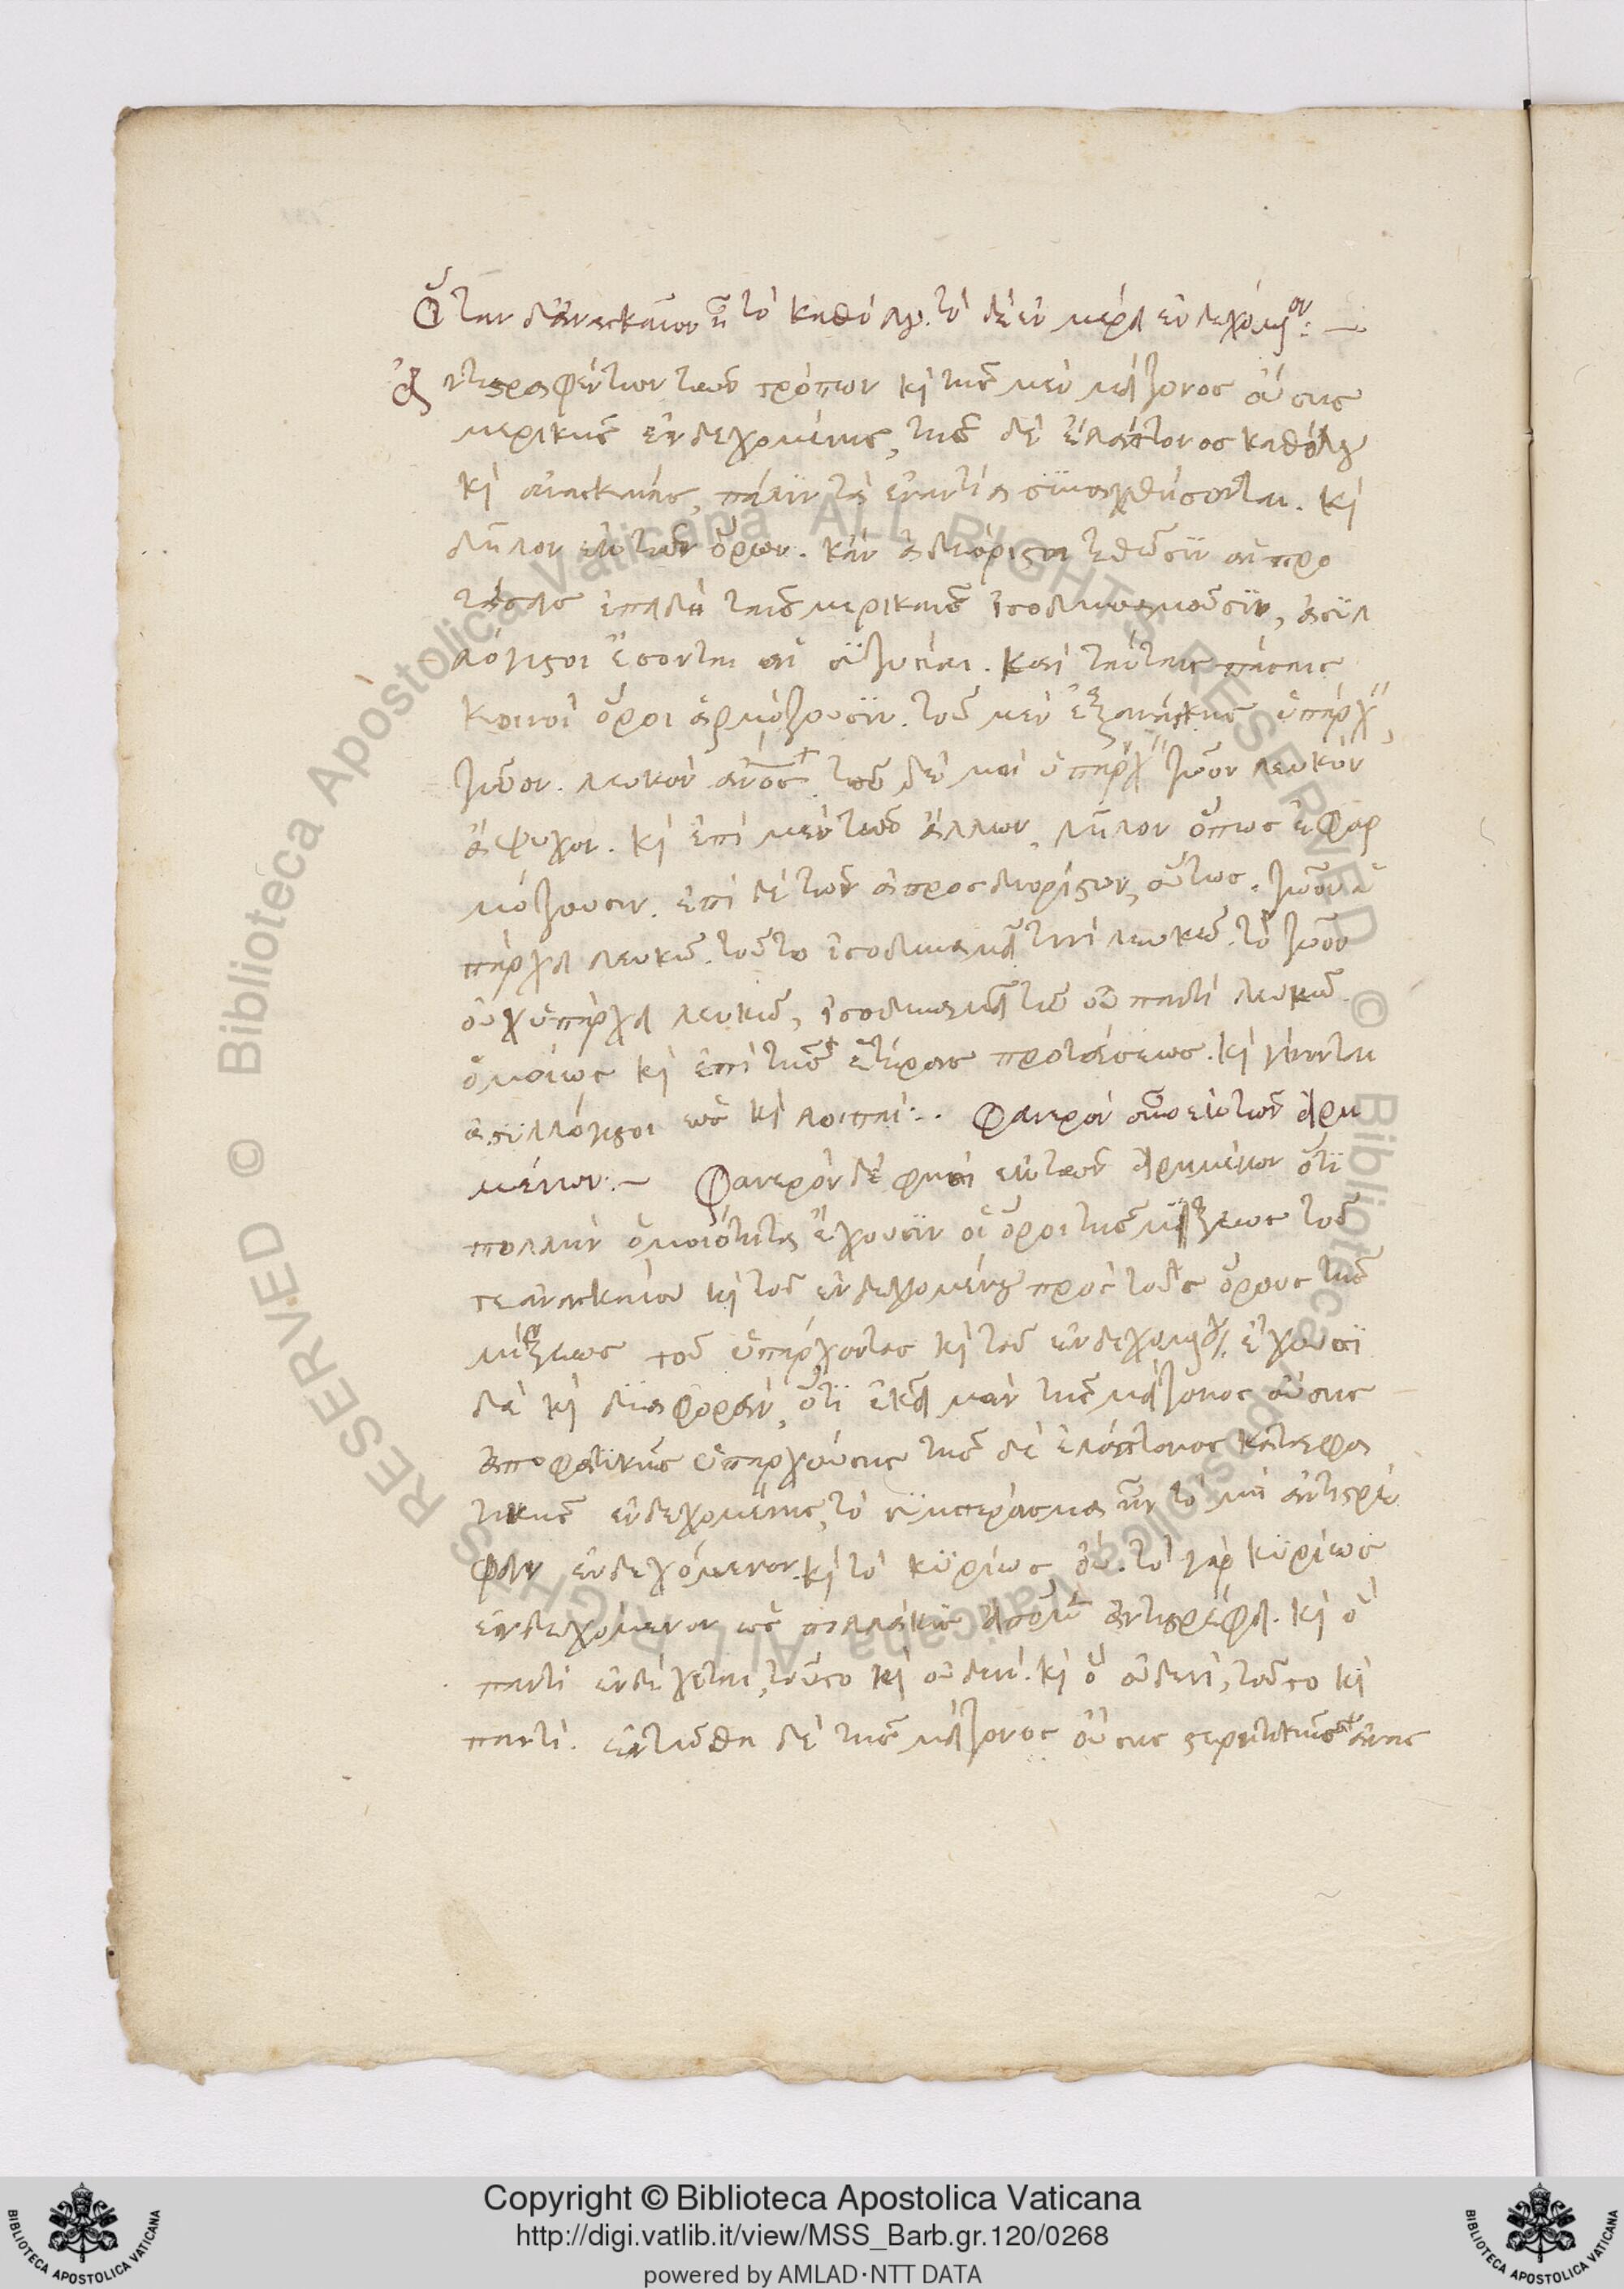 Ὅταν δ' ἀναγκαῖον ᾖ τὸ καθόλου. τὸ δὲ ἐν μέρει ἐνδεχόμενον:—
Ἀντιστραφέντων τῶν τρόπων κὶ τῆς μὲν μείζονος οὔσης
μερικῆς ἐνδεχομένης, τῆς δὲ ἐλάττονος καθόλου
κὶ ἀναγκαίας, πάλιν τὰ ἐναντία συναχθήσονται. κὶ
δῆλον ἐκ τῶν ὅρων. κἂν ἀδιόριστοι τεθῶσιν αἱ προ
τάσεις ἐπειδὴ ταῖς μερικαῖς ἰσοδυναμοῦσιν, ἀσυλ
λόγιστοι ἔσονται αἱ συζυγίαι. καὶ ταύταις πάσαις
κοινοὶ ὅροι ἁρμόζουσιν. τοῦ μὲν ἐξανάγκης ὑπάρχειν,
ζῶον. λευκὸν ἄνος. τοῦ δὲ μὴ ὑπάρχειν ζῶον λευκὸν
ἄψυχον. κὶ ἐπὶ μὲν τῶν ἄλλων, δῆλον ὅπως ἐφαρ
μόζουσιν. ἐπὶ δὲ τῶν ἀπροσδιορίστων, οὕτως. ζῶον ὑ
πάρχει λευκῷ. τοῦτο ἰσοδυναμεῖ τινὶ λευκῷ. τὸ ζῶον
οὐχ ὑπάρχει λευκῷ, ἰσοδυναμεῖ τῷ οὐ παντὶ λευκῷ.
ὁμοίως κὶ ἐπὶ τῆς ἑτέρας προτάσεως. κὶ γίνονται
ἀσυλλόγιστοι ὡς κὶ λοιπαί:. Φανερὸν οὖν ἐκ τῶν εἰρη
μένων:— Φανερὸν δὲ φησὶ ἐκ τῶν εἰρημένων ὅτι
πολλὴν ὁμοιότητα ἔχουσιν οἱ ὅροι τῆς μίξεως τοῦ
τε ἀναγκαίου κὶ τοῦ ἐνδεχομένου πρὸς τοὺς ὅρους τῆς
μίξεως τοῦ ὑπάρχοντος κὶ τοῦ ἐνδεχομένου. ἔχουσι
δὲ κὶ διαφορὰν, ὅτι ἐκεῖ μὲν τῆς μείζονος οὔσης
ἀποφατικῆς ὑπαρχούσης τῆς δὲ ἐλάττονος καταφα
τικῆς ἐνδεχομένης, τὸ συμπέρασμα ἦν τὸ μὴ ἀντιστρέ
φον ἐνδεχόμενον. κὶ τὸ κυρίως οὔ. τὸ γὰρ κυρίως
ἐνδεχόμενον ὡς πολλάκις εἴπομεν ἀντιστρέφει. κὶ ὃ
παντὶ ἐνδέχεται, τοῦτο κὶ οὐδενί. κὶ ὃ οὐδενὶ, τοῦτο κὶ
παντί. ἐνταῦθα δὲ τῆς μείζονος οὔσης στερητικῆς ἀναγκ